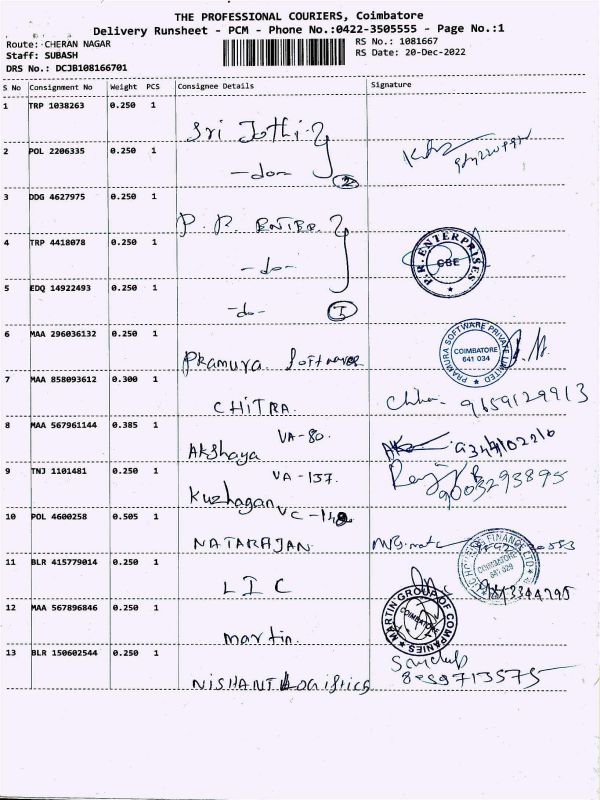 THE PROFESSIONAL COURIERS, Coimbatore
Delivery Runsheet - PCM - Phone No.:0422-3505555 - Page No.:1
Route: CHERAN NAGAR
RS No.: 1081667
Staff: SUBASH
RS Date: 20-Dec-2022
DRS No.: DCJB108166701
S No Consignment No Weight PCS Consignee Details Signature
1 TRP 1038263 0.250 1 Sri Jothi
2 POL 2206335 0.250 1 -do- 2
3 DDG 4627975 0.250 1 P. R. ENTER.
4 TRP 4418078 0.250 1 -do- P.R. ENTERPRISES CBE
5 EDQ 14922493 0.250 1 -do-
6 MAA 296036132 0.250 1 Pramura PRAMURA SOFTWARE PRIVATE LIMITED COIMBATORE 641 034
7 MAA 858093612 0.300 1 CHITRA. 9659129913
8 MAA 567961144 0.385 1 Akshaya VA-80.
9 TNJ 1101481 0.250 1 Kuzhagan VA-137. 9003293895
10 POL 4600258 0.505 1 NATARAJAN
11 BLR 415779014 0.250 1 LIC FINANCE LTD COIMBATORE
12 MAA 567896846 0.250 1 martin. MARTIN GROUP OF COMPANIES COIMBATORE
13 BLR 150602544 0.250 1 NISHANT Logistics 8489713575